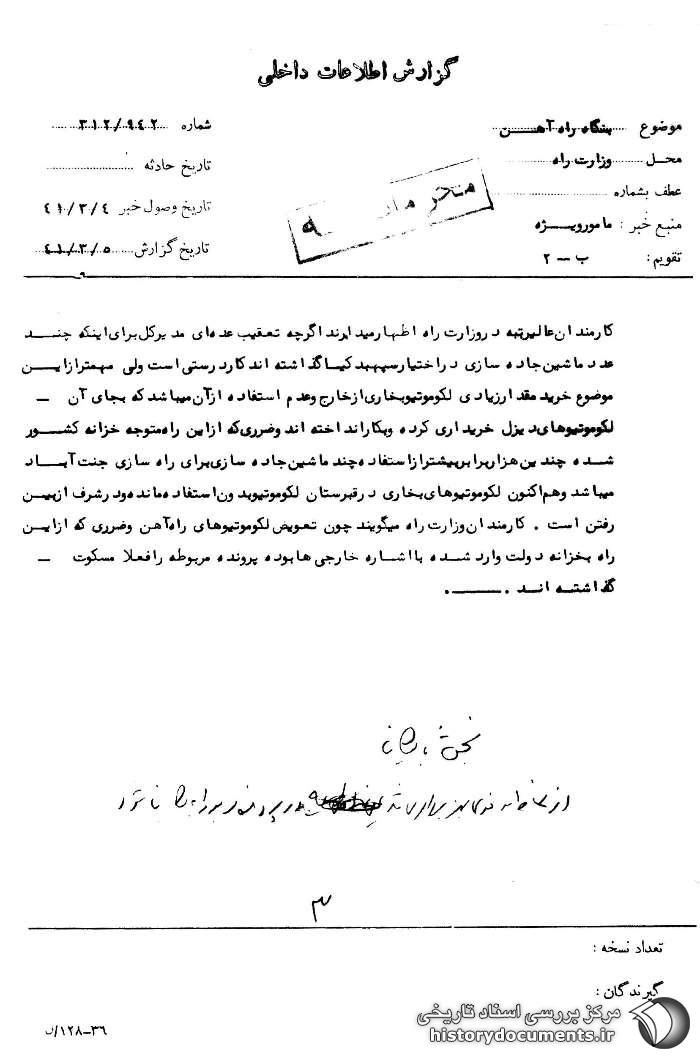 گزارش اطلاعات داخلی
موضوع بنگاه راه آهن
شماره ۳۱۲/۹۴۲
محل وزارت راه
تاریخ حادثه
عطف بشماره
تاریخ وصول خبر ۴۱/۳/۴
منبع خبر : مامورویژه
تاریخ گزارش ۴۱/۳/۵
تقویم: ب – ۲
کارمندان عالیرتبه در وزارت راه اظهار میدارند اگرچه تعقیب عده‌ای مدیرکل برای اینکه چند
عدد ماشین جاده سازی در اختیار سپهبد کیا گذاشته اند کار درستی است ولی مهمتر از این
موضوع خرید مقدار زیادی لکوموتیو بخاری از خارج و عدم استفاده از آن میباشد که بجای آن –
لکوموتیوهای دیزل خریداری کرده و بکار انداخته اند و ضرری که از این راه متوجه خزانه کشور
شده چندین هزار برابر بیشتر از استفاده چند ماشین جاده سازی برای راه سازی جنت آباد
میباشد و هم اکنون لکوموتیوهای بخاری در قبرستان لکوموتیو بدون استفاده مانده و در شرف از بین
رفتن است . کارمندان وزارت راه میگویند چون تعویض لکوموتیوهای راه آهن و ضرری که از این
راه بخزانه دولت وارد شده با اشاره خارجی ها بوده پرونده مربوطه را فعلا مسکوت –
گذاشته اند .
۳
تعداد نسخه :
گیرندگان :
۳۶–۱۲۸/ن
مرکز بررسی اسناد تاریخی
historydocuments.ir